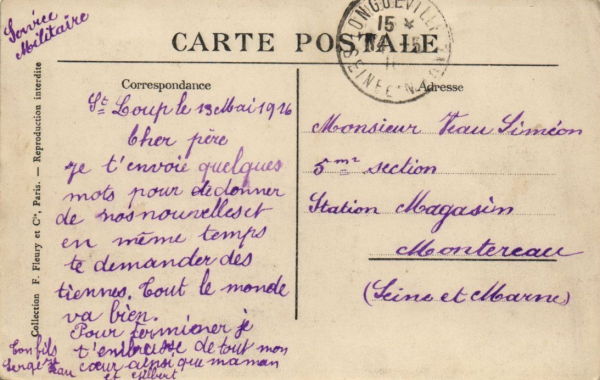 Service
Militaire
CARTE POSTALE
Correspondance
Adresse
St Loup le 13 Mai 1916
Cher père
Je t'envoie quelques
mots pour de donner
de nos nouvelles et
en même temps
te demander des
tiennes. Tout le monde
va bien.
Pour terminer je
t'embrasse de tout mon
cœur ainsi que maman
et Gilbert
Ton fils
Veau
Monsieur Veau Siméon
5me section
Station Magasin
Montereau
(Seine et Marne)
Collection F. Fleury et Cie, Paris. — Reproduction interdite
LONGUEVILLE
15 *